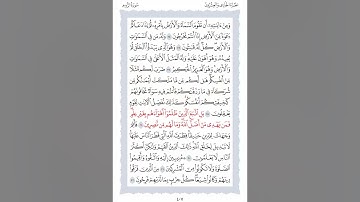 سُورَةُ الرُّومِ
الجُزْءُ الحَادِي وَالعِشْرُونَ
وَمِنْ ءَايَٰتِهِۦٓ أَن تَقُومَ ٱلسَّمَآءُ وَٱلْأَرْضُ بِأَمْرِهِۦۚ ثُمَّ إِذَا دَعَاكُمْ
دَعْوَةً مِّنَ ٱلْأَرْضِ إِذَآ أَنتُمْ تَخْرُجُونَ ٢٥ وَلَهُۥ مَن فِي ٱلسَّمَٰوَٰتِ
وَٱلْأَرْضِۖ كُلٌّ لَّهُۥ قَٰنِتُونَ ٢٦ وَهُوَ ٱلَّذِي يَبْدَؤُاْ ٱلْخَلْقَ
ثُمَّ يُعِيدُهُۥ وَهُوَ أَهْوَنُ عَلَيْهِۚ وَلَهُ ٱلْمَثَلُ ٱلْأَعْلَىٰ فِي ٱلسَّمَٰوَٰتِ
وَٱلْأَرْضِۚ وَهُوَ ٱلْعَزِيزُ ٱلْحَكِيمُ ٢٧ ضَرَبَ لَكُم مَّثَلًا
مِّنْ أَنفُسِكُمْۖ هَل لَّكُم مِّن مَّا مَلَكَتْ أَيْمَٰنُكُم مِّن
شُرَكَآءَ فِي مَا رَزَقْنَٰكُمْ فَأَنتُمْ فِيهِ سَوَآءٌ تَخَافُونَهُمْ
كَخِيفَتِكُمْ أَنفُسَكُمْۚ كَذَٰلِكَ نُفَصِّلُ ٱلْأٓيَٰتِ لِقَوْمٍ
يَعْقِلُونَ ٢٨ بَلِ ٱتَّبَعَ ٱلَّذِينَ ظَلَمُوٓاْ أَهْوَآءَهُم بِغَيْرِ عِلْمٍۖ
فَمَن يَهْدِي مَنْ أَضَلَّ ٱللَّهُۖ وَمَا لَهُم مِّن نَّٰصِرِينَ ٢٩ فَأَقِمْ
وَجْهَكَ لِلدِّينِ حَنِيفًاۚ فِطْرَتَ ٱللَّهِ ٱلَّتِي فَطَرَ ٱلنَّاسَ عَلَيْهَاۚ
لَا تَبْدِيلَ لِخَلْقِ ٱللَّهِۚ ذَٰلِكَ ٱلدِّينُ ٱلْقَيِّمُ وَلَٰكِنَّ أَكْثَرَ
ٱلنَّاسِ لَا يَعْلَمُونَ ٣٠ مُنِيبِينَ إِلَيْهِ وَٱتَّقُوهُ وَأَقِيمُواْ
ٱلصَّلَوٰةَ وَلَا تَكُونُواْ مِنَ ٱلْمُشْرِكِينَ ٣١ مِنَ ٱلَّذِينَ فَرَّقُواْ
دِينَهُمْ وَكَانُواْ شِيَعًاۖ كُلُّ حِزْبٍۭ بِمَا لَدَيْهِمْ فَرِحُونَ ٣٢
٤٠٧